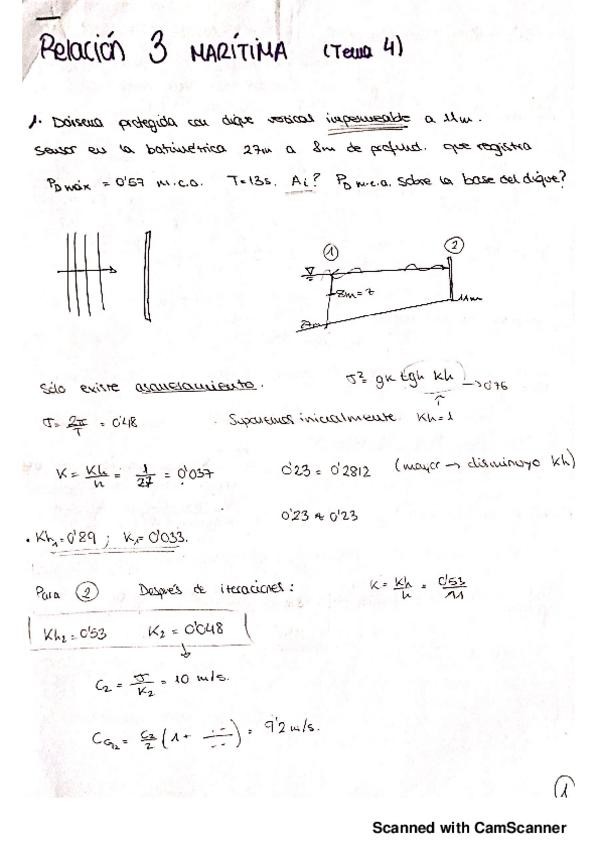 Relación 3 MARÍTIMA (Tema 4)
1. Dársena protegida con dique vertical impermeable a 11m.
Sensor en la batimétrica 27m a 8m de profund. que registra
PDmáx = 0'57 m.c.a. T=13s. Ai? PD m.c.a. sobre la base del dique?
1
2
8m=z
11m
27m
Sólo existe asomeramiento. σ²= gk tgh kh → 0'76
σ= 2π/T = 0'48 Suponemos inicialmente kh=1
K= Kh/h = 1/27 = 0'037 0'23 = 0'2812 (mayor → disminuyo kh)
0'23 ≈ 0'23
• Kh1=0'89 ; K1=0'033.
Para 2 Después de iteraciones: K= Kh/h = 0'53/11
Kh2=0'53 K2=0'048
C2 = σ/K2 = 10 m/s.
CG2 = C2/2 (1+ ) = 9'2 m/s.
1
Scanned with CamScanner